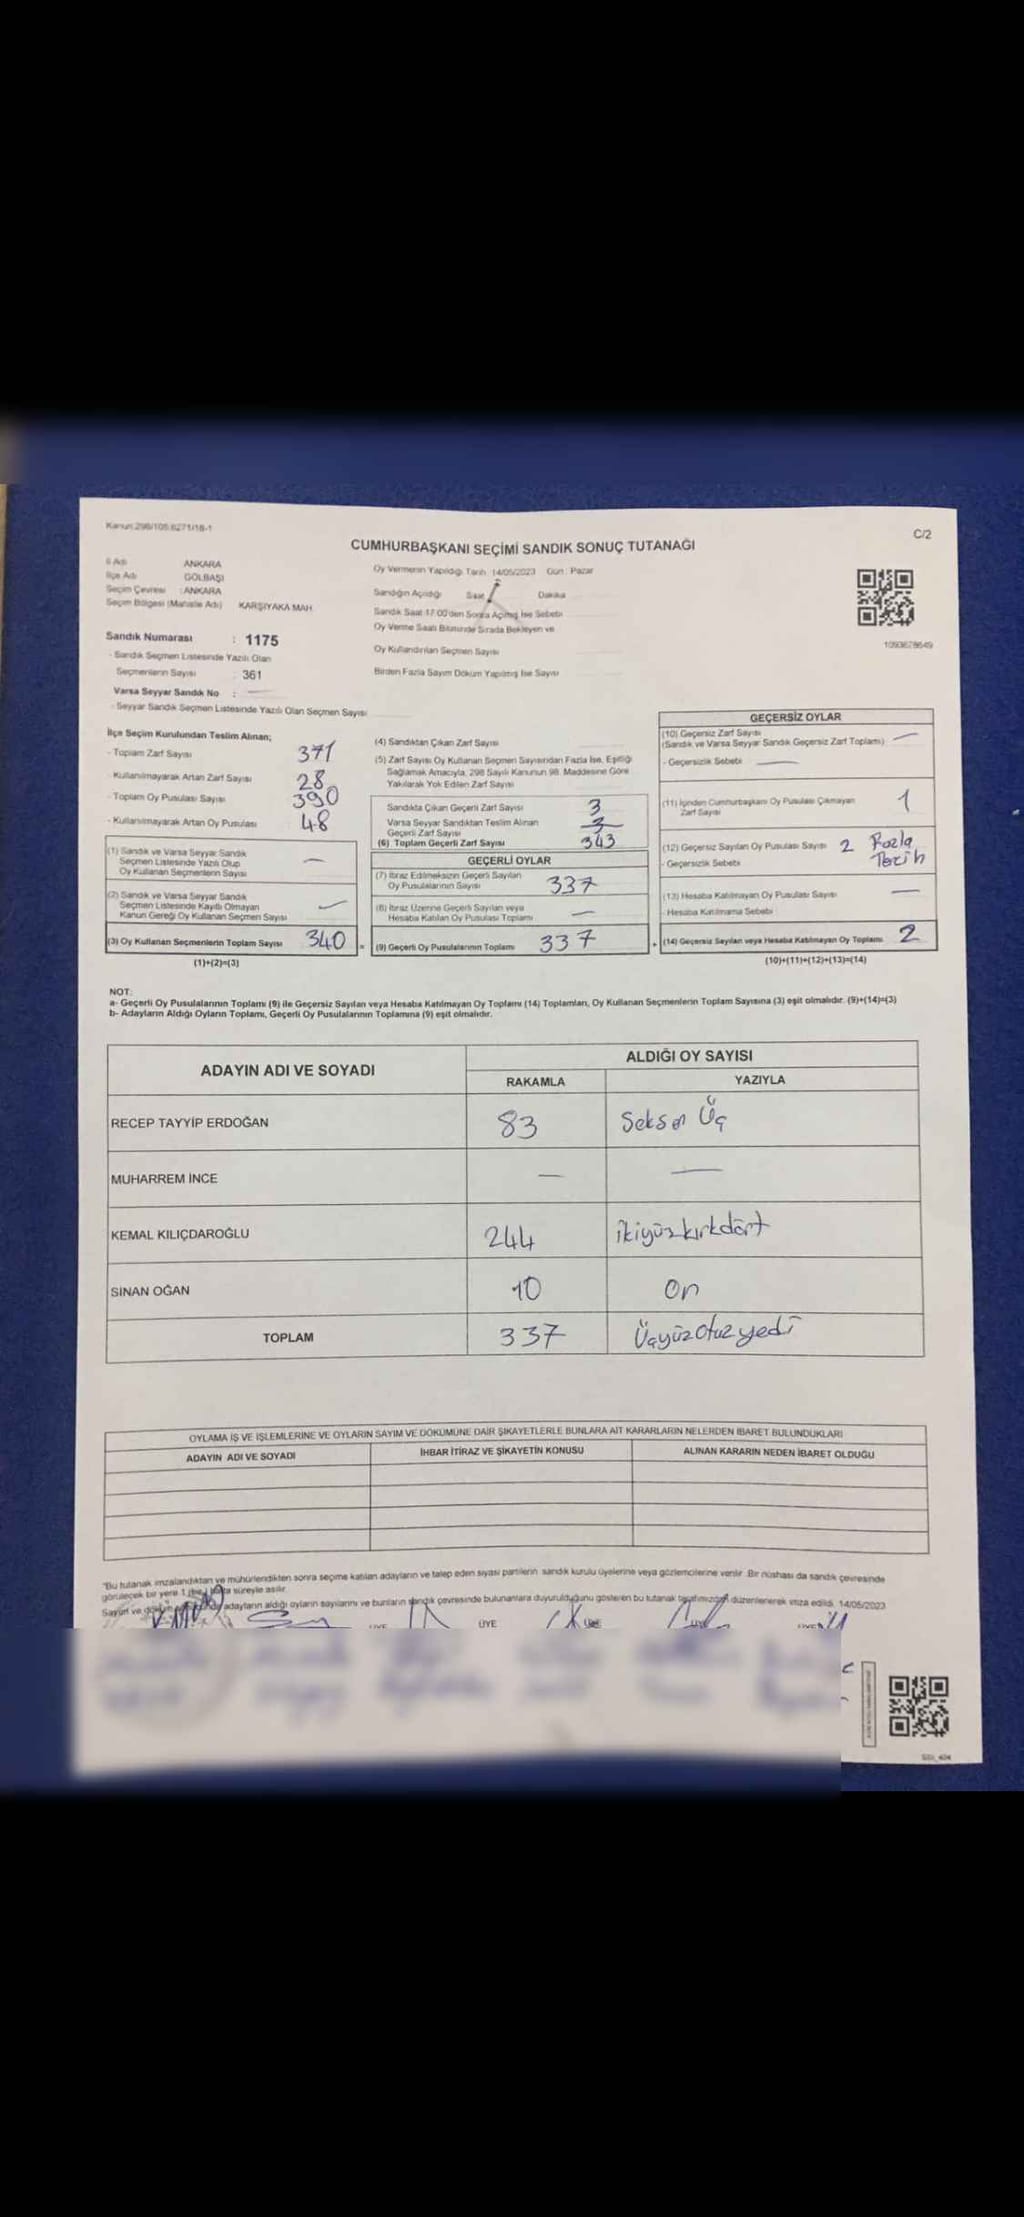 Kanun:298/105.6271/18-1
C/2
CUMHURBAŞKANI SEÇİMİ SANDIK SONUÇ TUTANAĞI
İl Adı ANKARA
İlçe Adı GÖLBAŞI
Seçim Çevresi : ANKARA
Seçim Bölgesi (Mahalle Adı) KARŞIYAKA MAH.
Sandık Numarası : 1175
- Sandık Seçmen Listesinde Yazılı Olan
Seçmenlerin Sayısı : 361
Varsa Seyyar Sandık No : —
- Seyyar Sandık Seçmen Listesinde Yazılı Olan Seçmen Sayısı
Oy Vermenin Yapıldığı Tarih 14/05/2023 Gün : Pazar
Sandığın Açıldığı Saat Dakika
Sandık Saat 17:00'den Sonra Açılmış İse Sebebi
Oy Verme Saati Bitiminde Sırada Bekleyen ve
Oy Kullandırılan Seçmen Sayısı
Birden Fazla Sayım Döküm Yapılmış İse Sayısı
1093678649
İlçe Seçim Kurulundan Teslim Alınan;
- Toplam Zarf Sayısı 371
- Kullanılmayarak Artan Zarf Sayısı 28
- Toplam Oy Pusulası Sayısı 390
- Kullanılmayarak Artan Oy Pusulası 48
(1) Sandık ve Varsa Seyyar Sandık
Seçmen Listesinde Yazılı Olup
Oy Kullanan Seçmenlerin Sayısı —
(2) Sandık ve Varsa Seyyar Sandık
Seçmen Listesinde Kayıtlı Olmayan
Kanun Gereği Oy Kullanan Seçmen Sayısı —
(3) Oy Kullanan Seçmenlerin Toplam Sayısı 340 =
(1)+(2)=(3)
(4) Sandıktan Çıkan Zarf Sayısı
(5) Zarf Sayısı Oy Kullanan Seçmen Sayısından Fazla İse, Eşitliği
Sağlamak Amacıyla, 298 Sayılı Kanunun 98. Maddesine Göre
Yakılarak Yok Edilen Zarf Sayısı
Sandıkta Çıkan Geçerli Zarf Sayısı 3
Varsa Seyyar Sandıktan Teslim Alınan
Geçerli Zarf Sayısı
(6) Toplam Geçerli Zarf Sayısı 343
GEÇERLİ OYLAR
(7) İtiraz Edilmeksizin Geçerli Sayılan
Oy Pusulalarının Sayısı 337
(8) İtiraz Üzerine Geçerli Sayılan veya
Hesaba Katılan Oy Pusulası Toplamı —
(9) Geçerli Oy Pusulalarının Toplamı 337 +
GEÇERSİZ OYLAR
(10) Geçersiz Zarf Sayısı —
(Sandık ve Varsa Seyyar Sandık Geçersiz Zarf Toplamı)
- Geçersizlik Sebebi —
(11) İçinden Cumhurbaşkanı Oy Pusulası Çıkmayan
Zarf Sayısı 1
(12) Geçersiz Sayılan Oy Pusulası Sayısı 2 Fazla
- Geçersizlik Sebebi Tercih
(13) Hesaba Katılmayan Oy Pusulası Sayısı —
- Hesaba Katılmama Sebebi
(14) Geçersiz Sayılan veya Hesaba Katılmayan Oy Toplamı 2
(10)+(11)+(12)+(13)=(14)
NOT:
a- Geçerli Oy Pusulalarının Toplamı (9) ile Geçersiz Sayılan veya Hesaba Katılmayan Oy Toplamı (14) Toplamları, Oy Kullanan Seçmenlerin Toplam Sayısına (3) eşit olmalıdır. (9)+(14)=(3)
b- Adayların Aldığı Oyların Toplamı, Geçerli Oy Pusulalarının Toplamına (9) eşit olmalıdır.
ADAYIN ADI VE SOYADI
ALDIĞI OY SAYISI
RAKAMLA YAZIYLA
RECEP TAYYİP ERDOĞAN 83 Seksen Üç
MUHARREM İNCE — —
KEMAL KILIÇDAROĞLU 244 ikiyüzkırkdört
SİNAN OĞAN 10 On
TOPLAM 337 Üçyüzotuzyedi
OYLAMA İŞ VE İŞLEMLERİNE VE OYLARIN SAYIM VE DÖKÜMÜNE DAİR ŞİKAYETLERLE BUNLARA AİT KARARLARIN NELERDEN İBARET BULUNDUKLARI
ADAYIN ADI VE SOYADI İHBAR İTİRAZ VE ŞİKAYETİN KONUSU ALINAN KARARIN NEDEN İBARET OLDUĞU
"Bu tutanak imzalandıktan ve mühürlendikten sonra seçime katılan adayların ve talep eden siyasi partilerin sandık kurulu üyelerine veya gözlemcilerine verilir. Bir nüshası da sandık çevresinde
görülecek bir yere 1 hafta süreyle asılır.
Sayım ve adayların aldığı oyların sayılarını ve bunların sandık çevresinde bulunanlara duyurulduğunu gösteren bu tutanak tarafımızdan düzenlenerek imza edildi. 14/05/2023
ÜYE ÜYE ÜYE ÜYE ÜYE